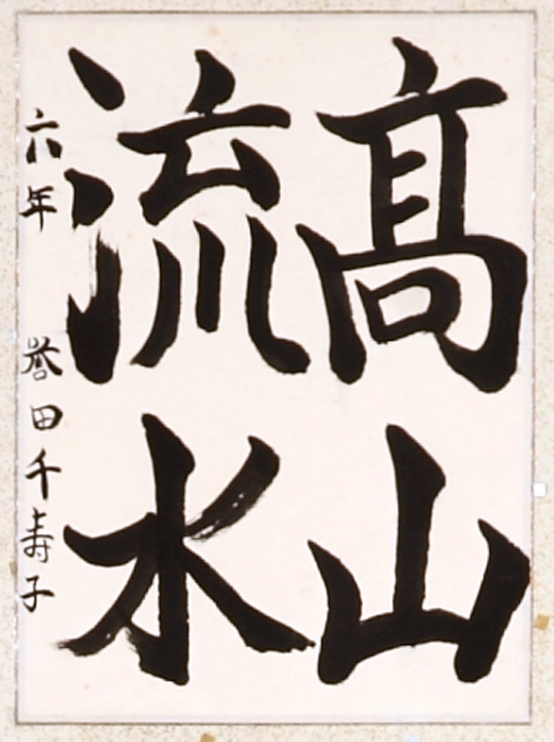 髙山
流水
六年 誉田千寿子